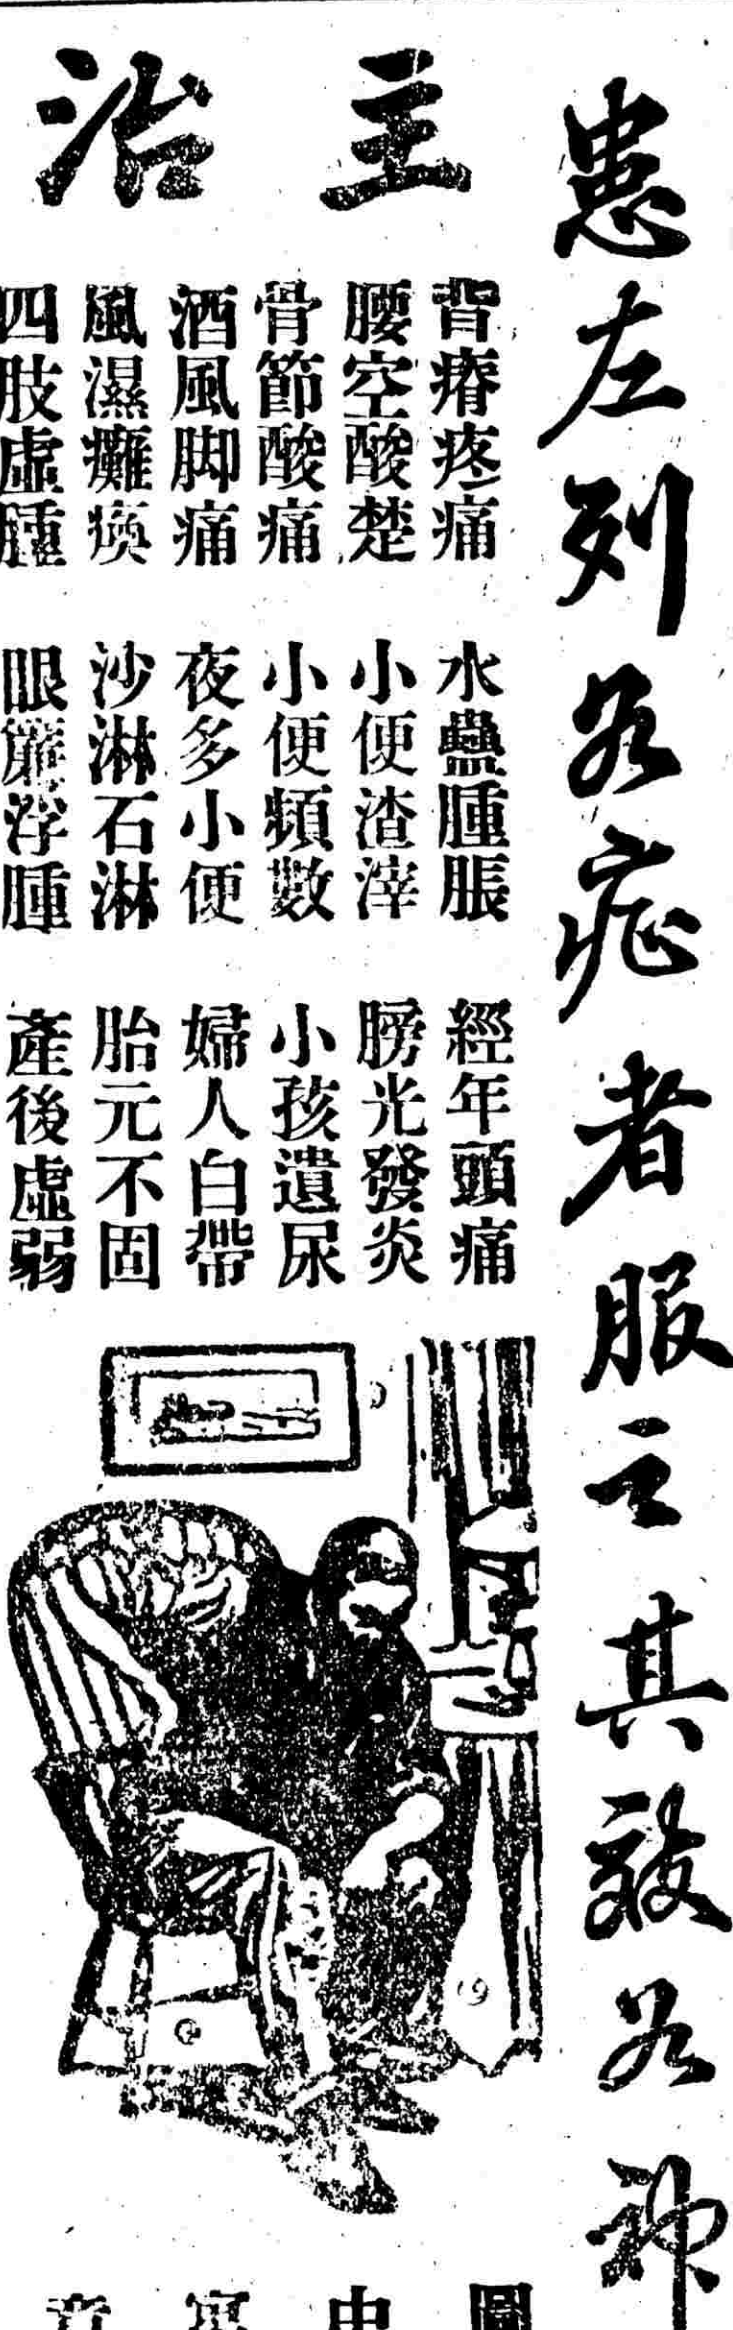 患左列各症者服之其效若神
主治
背瘠疼痛
腰空酸楚
骨節酸痛
酒風脚痛
風濕癱瘓
四肢虛腫
水蠱腫脹
小便渣滓
小便頻數
夜多小便
沙淋石淋
眼簾浮腫
經年頭痛
膀光發炎
小孩遺尿
婦人白帶
胎元不固
產後虛弱
圖中寓意